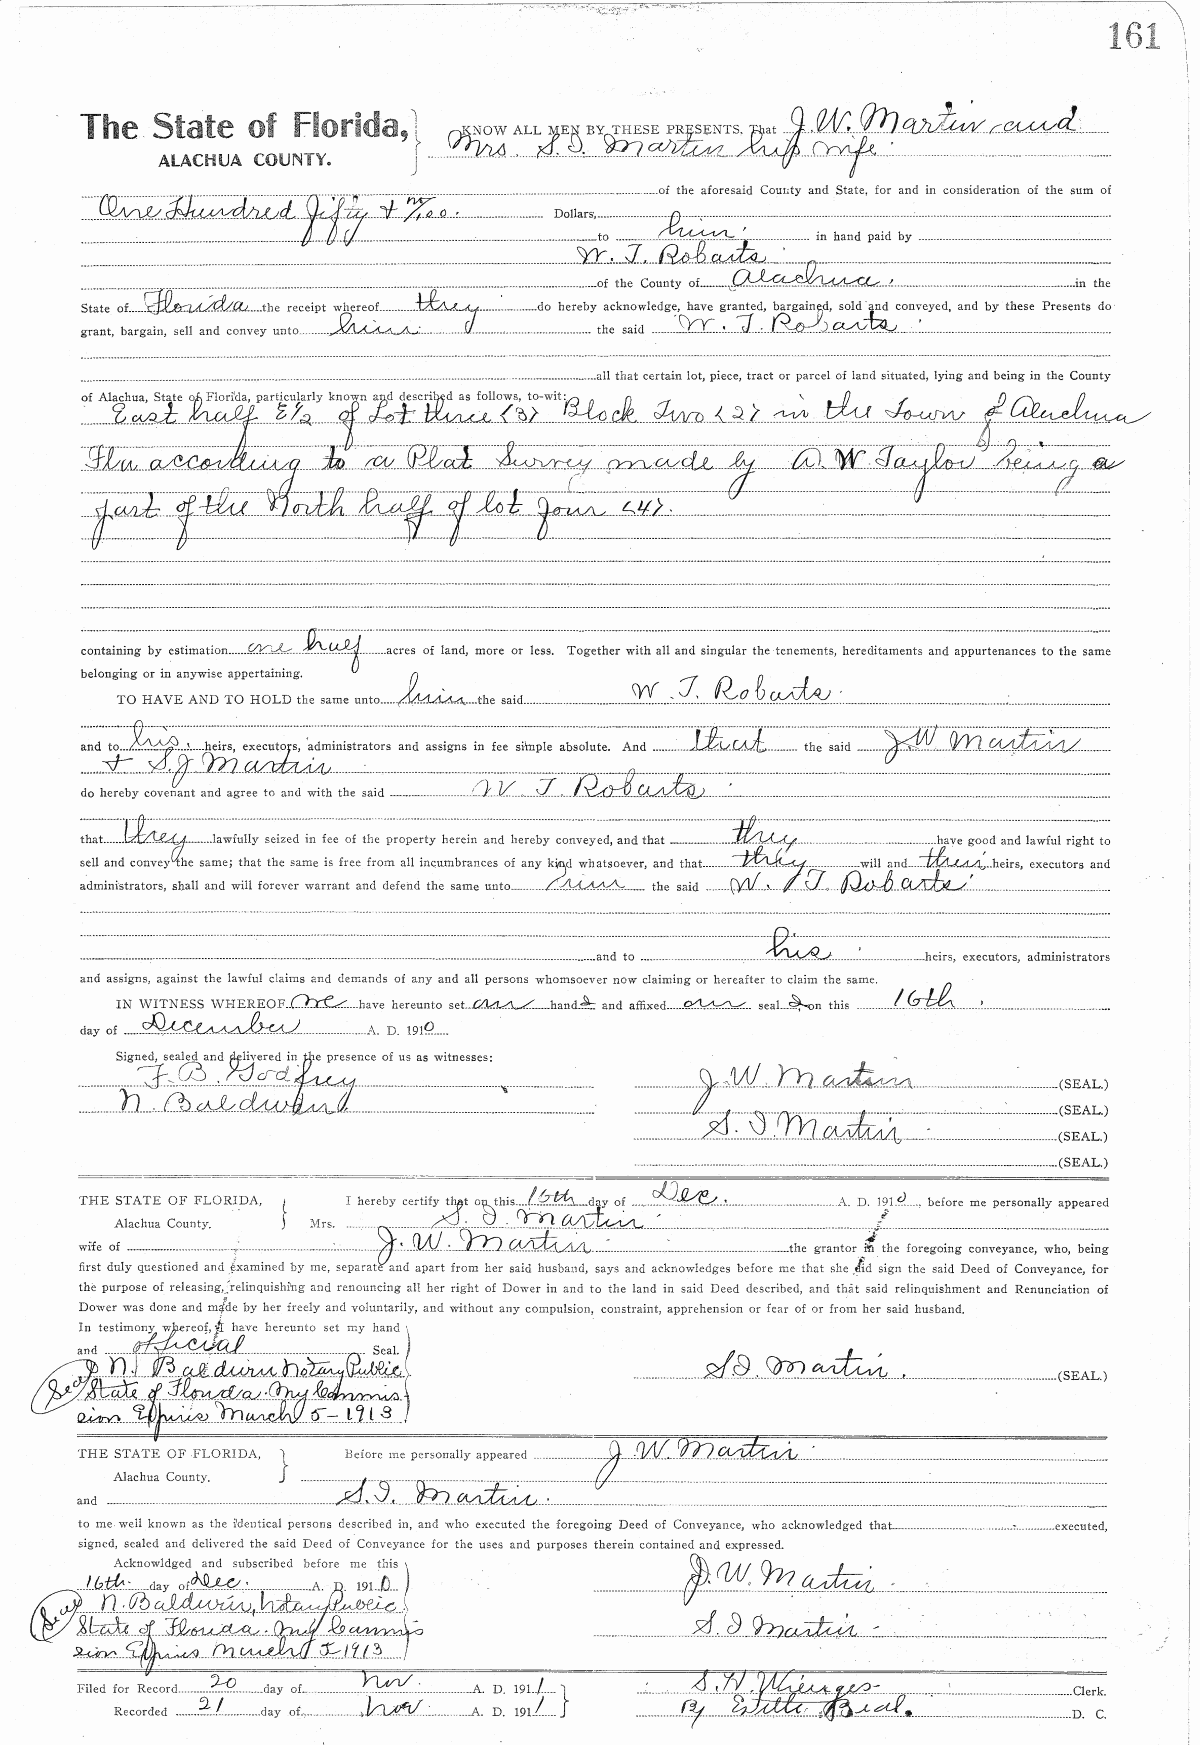 161
The State of Florida,
ALACHUA COUNTY.
KNOW ALL MEN BY THESE PRESENTS, That J. W. Martin and
Mrs. S. I. Martin his wife
of the aforesaid County and State, for and in consideration of the sum of
One Hundred Fifty & no/100. Dollars,
to him in hand paid by
W. T. Robarts
of the County of Alachua, in the
State of Florida the receipt whereof they do hereby acknowledge, have granted, bargained, sold and conveyed, and by these Presents do
grant, bargain, sell and convey unto him the said W. T. Robarts
all that certain lot, piece, tract or parcel of land situated, lying and being in the County
of Alachua, State of Florida, particularly known and described as follows, to-wit:
East half E1/2 of Lot three <3> Block Two <2> in the Town of Alachua
Fla according to a Plat Survey made by A. W. Taylor being a
part of the North half of lot four <4>.
containing by estimation one half acres of land, more or less. Together with all and singular the tenements, hereditaments and appurtenances to the same
belonging or in anywise appertaining.
TO HAVE AND TO HOLD the same unto him the said W. T. Robarts
and to his heirs, executors, administrators and assigns in fee simple absolute. And that the said J. W Martin
+ S. J Martin
do hereby covenant and agree to and with the said W T. Robarts
that they lawfully seized in fee of the property herein and hereby conveyed, and that they have good and lawful right to
sell and convey the same; that the same is free from all incumbrances of any kind whatsoever, and that they will and their heirs, executors and
administrators, shall and will forever warrant and defend the same unto him the said W. T. Robarts
and to his heirs, executors, administrators
and assigns, against the lawful claims and demands of any and all persons whomsoever now claiming or hereafter to claim the same.
IN WITNESS WHEREOF, we have hereunto set our hands and affixed our seals on this 16th
day of December A. D. 1910
Signed, sealed and delivered in the presence of us as witnesses:
F. B. Godfrey
N. Baldwin
J. W. Martin (SEAL.)
(SEAL.)
S. I. Martin (SEAL.)
(SEAL.)
THE STATE OF FLORIDA,
Alachua County.
I hereby certify that on this 16th day of Dec. A. D. 1910, before me personally appeared
Mrs. S. I. Martin
wife of J. W. Martin the grantor in the foregoing conveyance, who, being
first duly questioned and examined by me, separate and apart from her said husband, says and acknowledges before me that she did sign the said Deed of Conveyance, for
the purpose of releasing, relinquishing and renouncing all her right of Dower in and to the land in said Deed described, and that said relinquishment and Renunciation of
Dower was done and made by her freely and voluntarily, and without any compulsion, constraint, apprehension or fear of or from her said husband.
In testimony whereof, I have hereunto set my hand
and official Seal.
N. Baldwin Notary Public
Seal State of Florida. My Commis
sion Expires March 5-1913
S I. Martin. (SEAL.)
THE STATE OF FLORIDA,
Alachua County.
Before me personally appeared J. W. Martin
and S. I. Martin.
to me well known as the identical persons described in, and who executed the foregoing Deed of Conveyance, who acknowledged that executed,
signed, sealed and delivered the said Deed of Conveyance for the uses and purposes therein contained and expressed.
Acknowldged and subscribed before me this
16th day of Dec. A. D. 1910
N. Baldwin, Notary Public
Seal State of Florida. My Commis
sion Expires March 5 1913
J. W. Martin
S. I Martin
Filed for Record 20 day of Nov. A. D. 1911
Recorded 21 day of Nov A. D. 1911
S. H. Wienges Clerk.
By Estelle Beal. D. C.